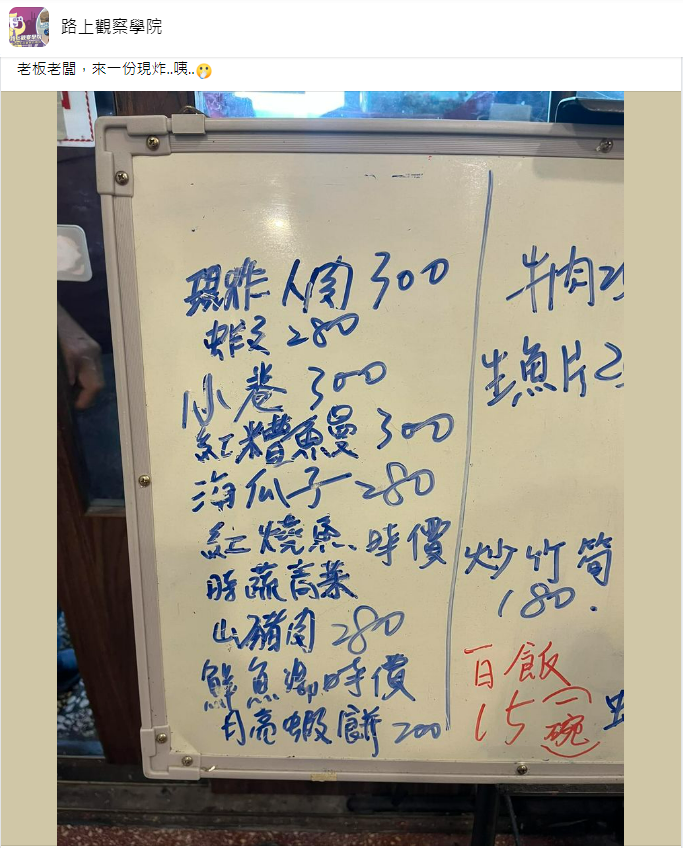 路上觀察學院
老板老闆，來一份現炸..咦..🫢
現炸人肉 300
280
小卷 300
紅糟鰻 300
海瓜子 280
紅燒魚、時價
時蔬高菜
山豬肉 280
鮮魚湯時價
月亮蝦餅 200
牛肉2
生魚片2
炒竹筍
180.
白飯
15(一碗)